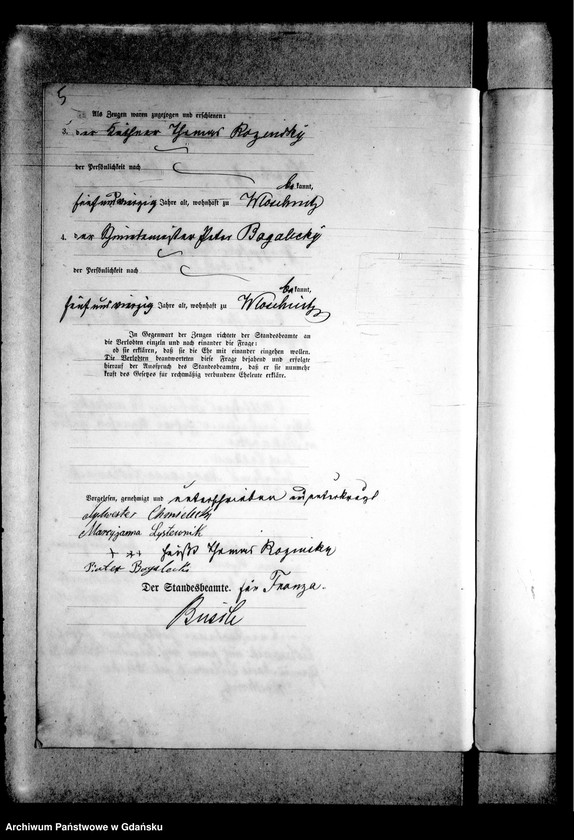 5
Als Zeugen waren zugezogen und erschienen:
3. der Käthner Thomas Rozinsky
der Persönlichkeit nach
be kannt,
fünfundvierzig Jahre alt, wohnhaft zu Wloschnitz
4. der Peter Bagalecky
der Persönlichkeit nach
be kannt,
fünfundvierzig Jahre alt, wohnhaft zu Wloschnitz
In Gegenwart der Zeugen richtete der Standesbeamte an
die Verlobten einzeln und nach einander die Frage:
ob sie erklären, daß sie die Ehe mit einander eingehen wollen.
Die Verlobten beantworteten diese Frage bejahend und erfolgte
hierauf der Ausspruch des Standesbeamten, daß er sie nunmehr
kraft des Gesetzes für rechtmäßig verbundene Eheleute erkläre.
Vorgelesen, genehmigt und unterschrieben und unterkreuzt
Sylwester
Marcyjanna
+ ++ Thomas Rozinsky
Pioter Bogalecki
Der Standesbeamte.
Archiwum Państwowe w Gdańsku